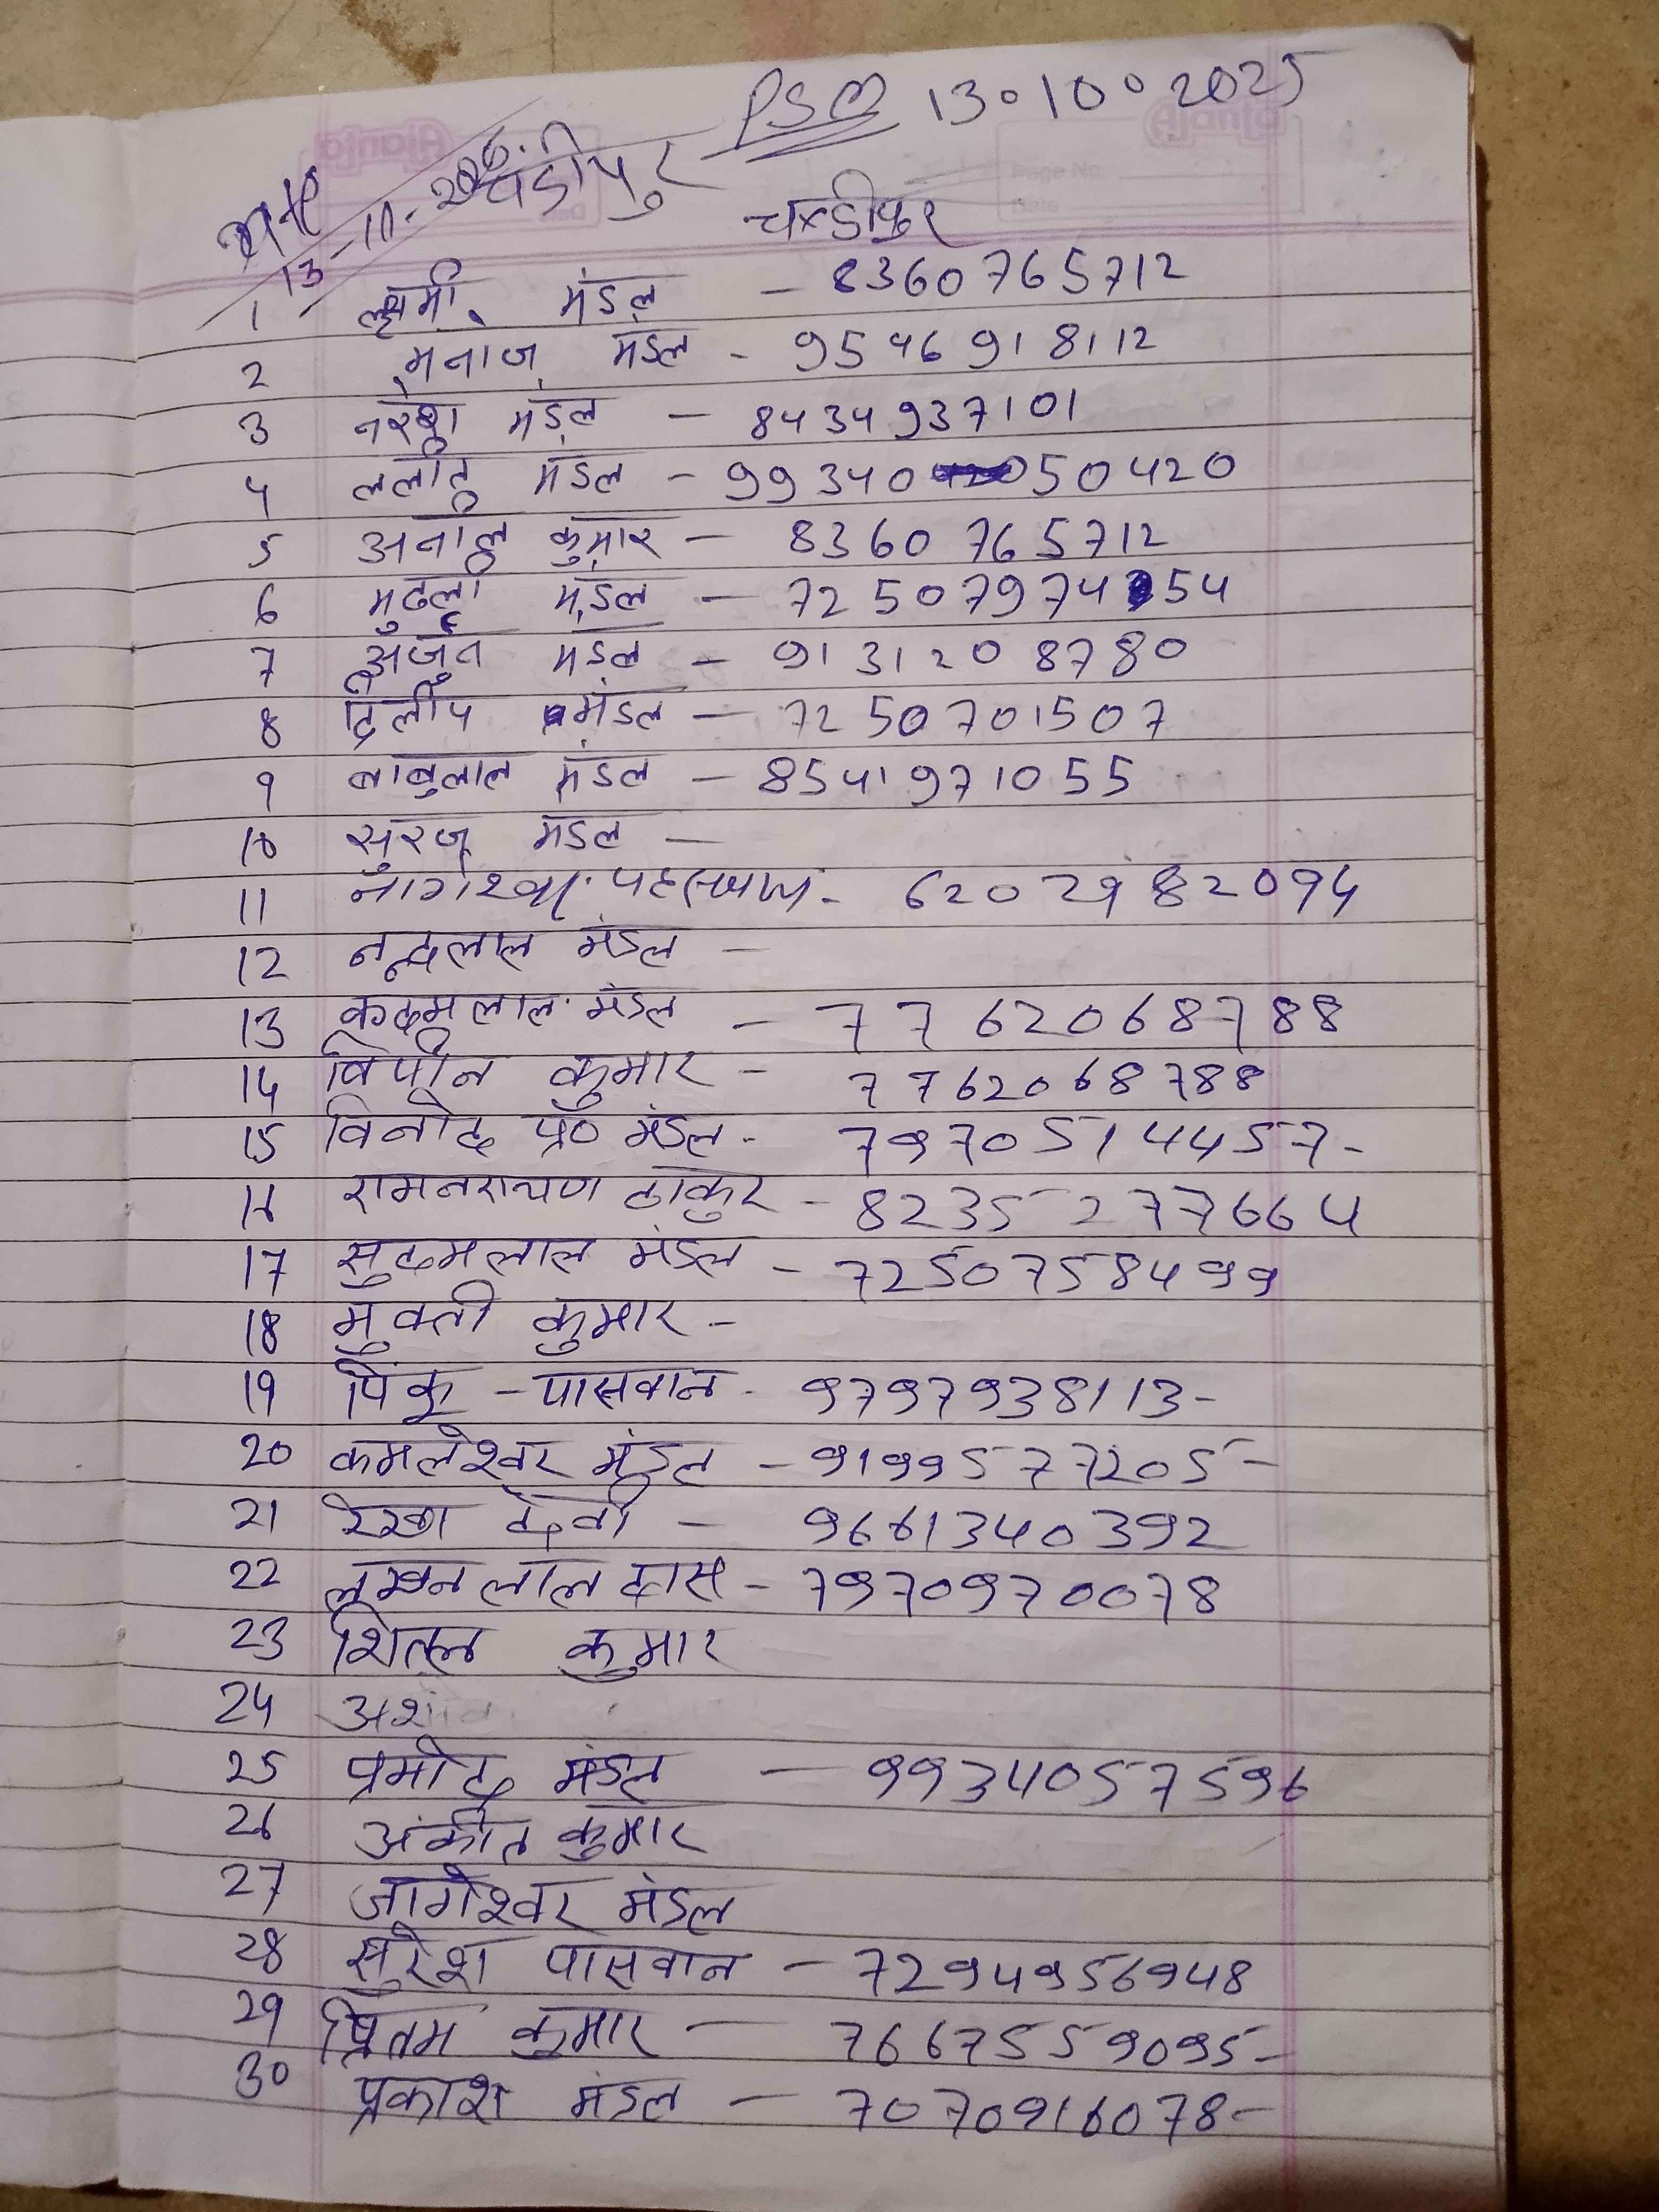 PSC 13.10.2025
13-11-2025.
चंडीपुर
चण्डीपुर
1 लक्ष्मी मंडल - 8360765712
2 मनोज मंडल - 9546918112
3 नरेश मंडल - 8434937101
4 मंडल - 9934050420
5 कुमार - 8360765712
6 मंडल - 7250797454
7 अर्जुन मंडल - 9131208780
8 दिलीप मंडल - 7250701507
9 बाबुलाल मंडल - 8541971055
10 सुरज मंडल -
11 नागेश्वर - 6202982094
12 नन्दलाल मंडल -
13 कदमलाल मंडल - 7762068788
14 विपीन कुमार - 7762068788
15 विनोद प्र० मंडल - 7970514457-
16 रामनरायण ठाकुर - 8235277664
17 सुदामलाल मंडल - 7250758499
18 मुक्ती कुमार -
19 पिंकू - पासवान - 9797938113-
20 कमलेश्वर मंडल - 9199577205-
21 रेखा देवी - 9661340392
22 लखन लाल दास - 7970970078
23 शितल कुमार
24
25 प्रमोद मंडल - 9934057596
26 अंकीत कुमार
27 जागेश्वर मंडल
28 सुरेश पासवान - 7294956948
29 प्रितम कुमार - 7667559095-
30 प्रकाश मंडल - 7070916078-